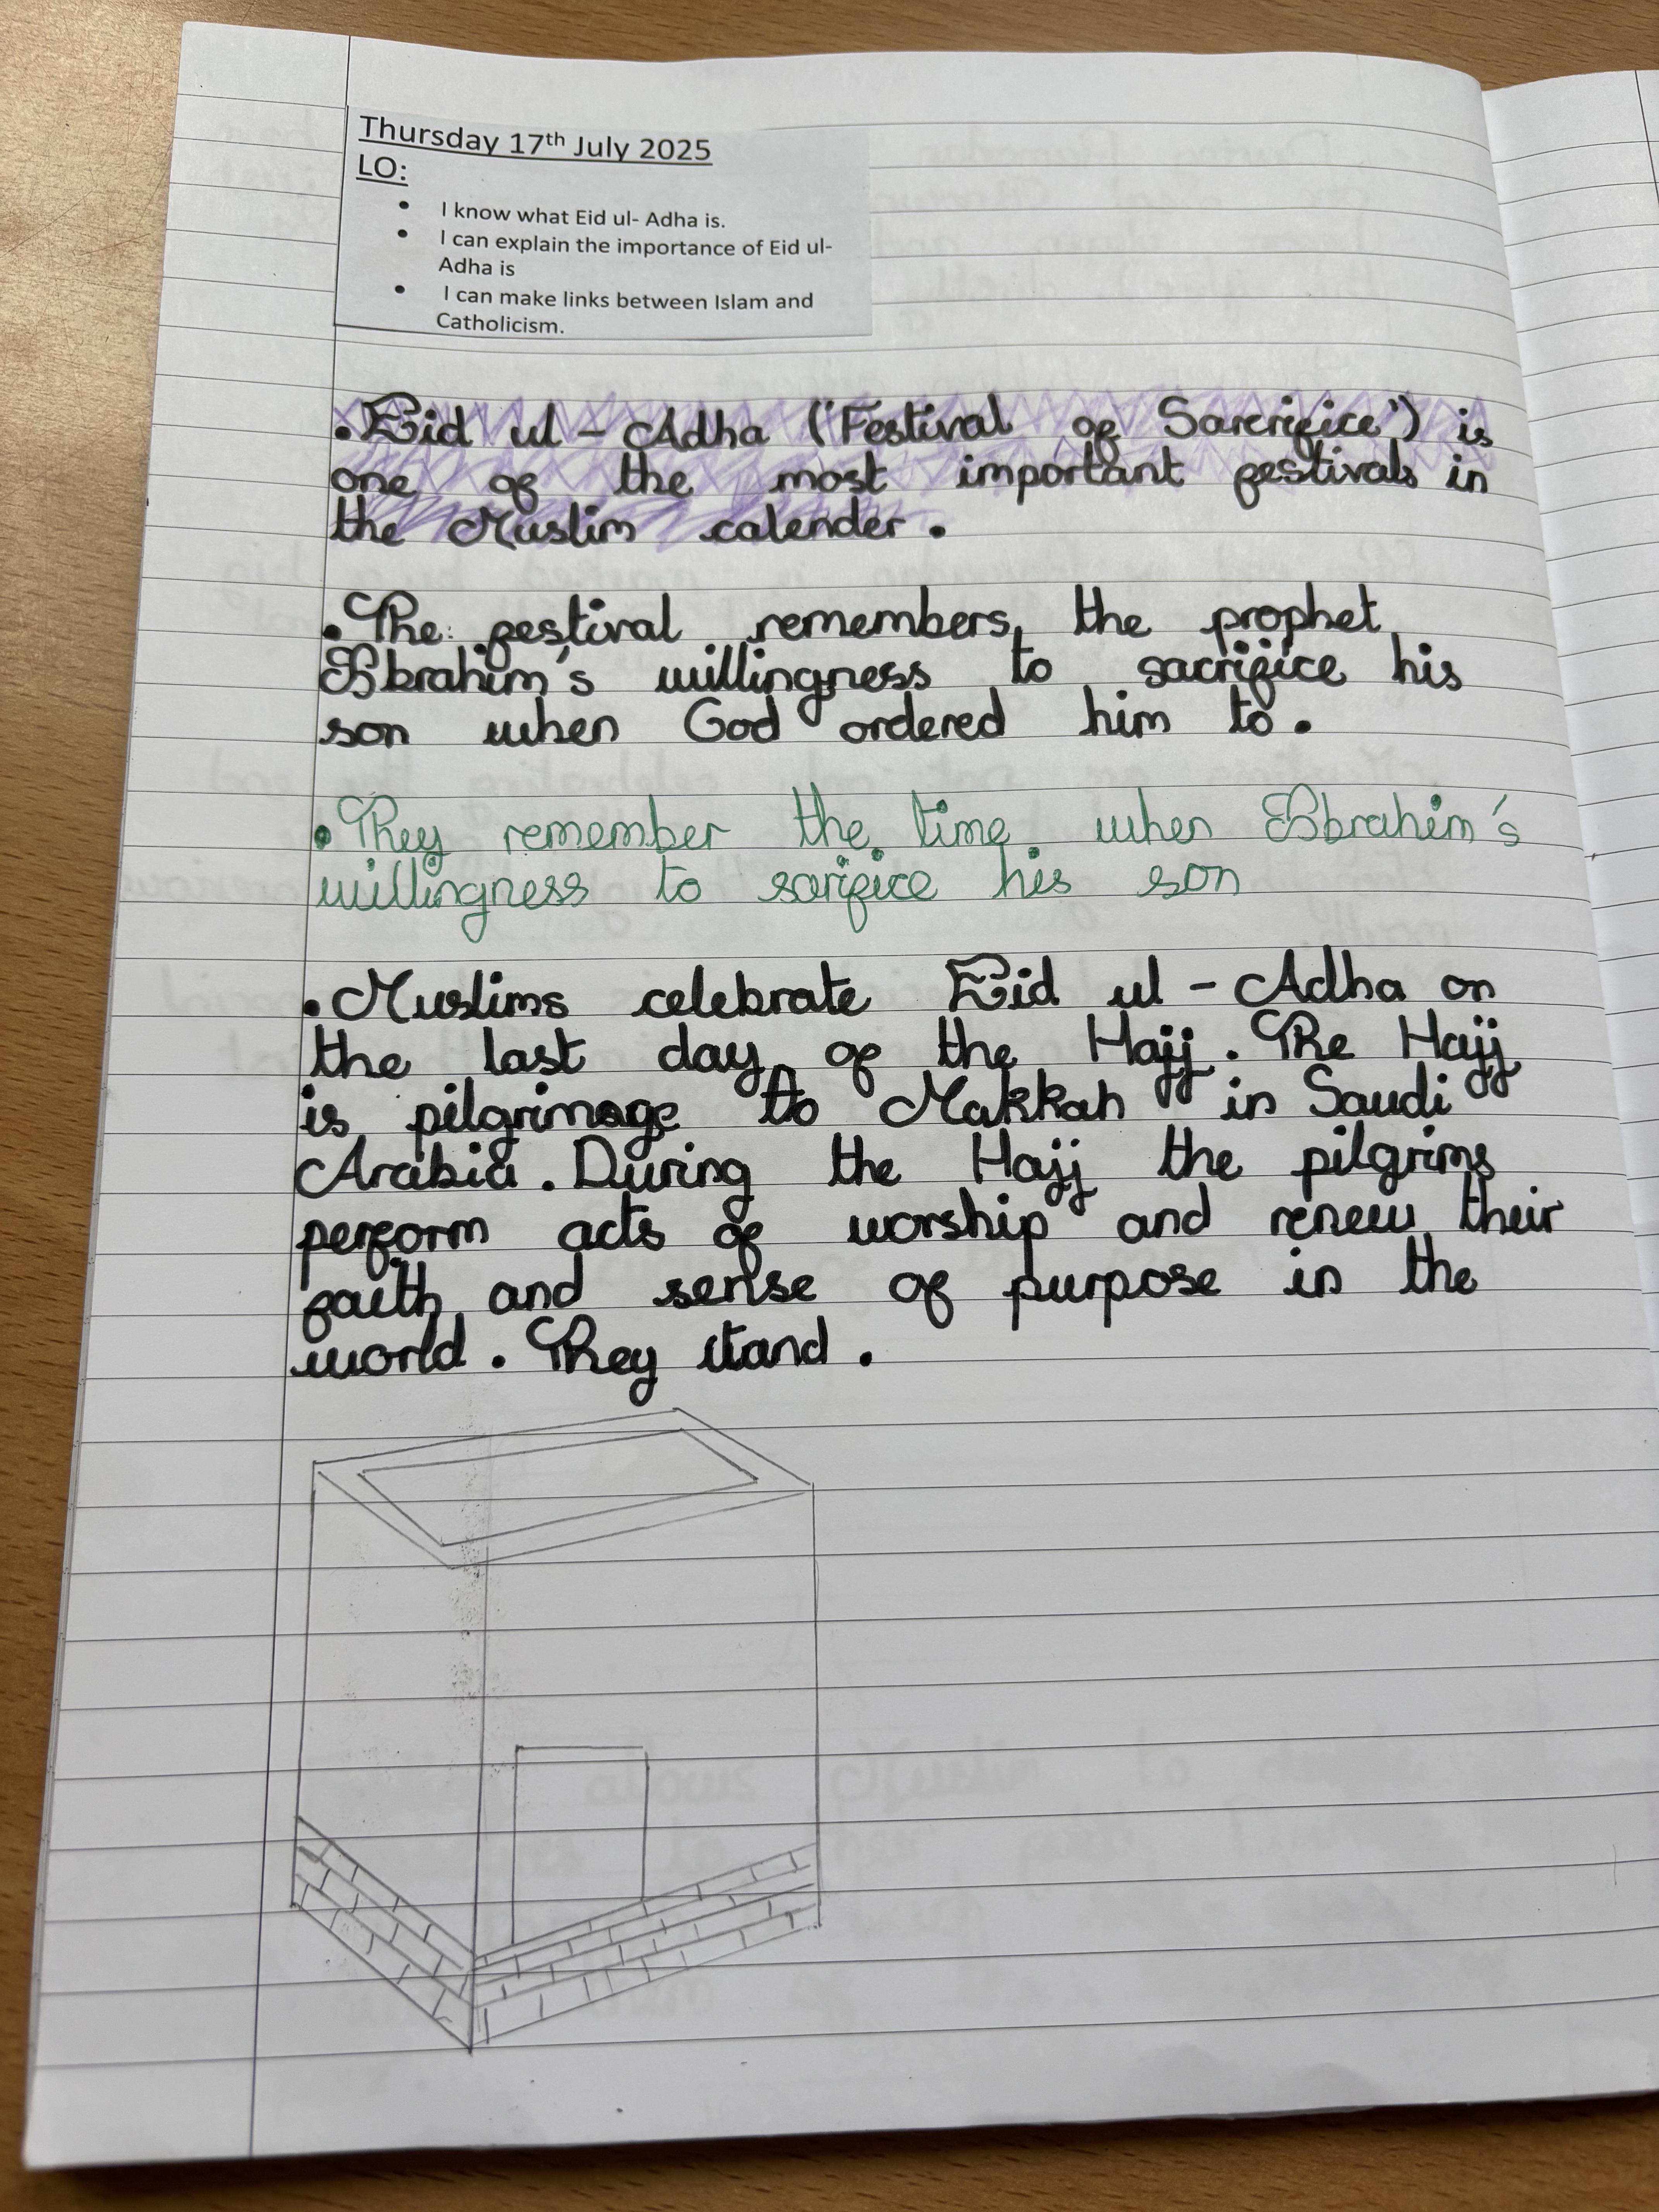 Thursday 17th July 2025
LO:
• I know what Eid ul- Adha is.
• I can explain the importance of Eid ul-
Adha is
• I can make links between Islam and
Catholicism.
• Eid ul - Adha ('Festival of Sarcrifice') is
one of the most important festivals in
the Muslim calender.
• The festival remembers, the prophet
Ibrahim's willingness to sacrifice his
son when God ordered him to.
• They remember the time when Ibrahim's
willingness to sarifice his son
• Muslims celebrate Eid ul - Adha on
the last day of the Hajj. The Hajj
is pilgrimage to Makkah in Saudi
Arabia. During the Hajj the pilgrims
perform acts of worship and renew their
faith and sense of purpose in the
world. They stand.